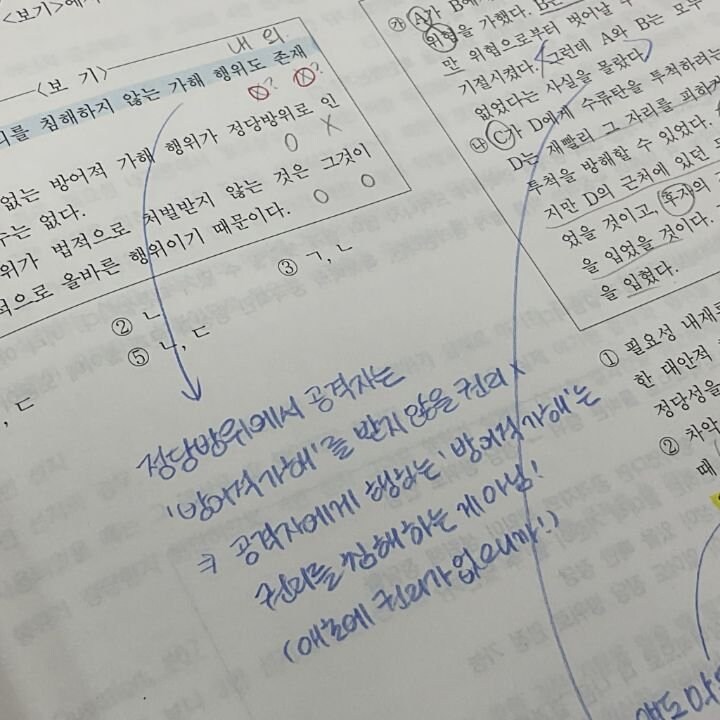 <보기>에
<보 기>
내 외
리를 침해하지 않는 가해 행위도 존재
X? X?
없는 방어적 가해 행위가 정당방위로 인
O X
수는 없다.
위가 법적으로 처벌받지 않는 것은 그것이
적으로 올바른 행위이기 때문이다.
O O
② ㄴ
③ ㄱ, ㄴ
⑤ ㄴ, ㄷ
, ㄷ
정당방위에서 공격자는
'방어적 가해'를 받지 않을 권리 X
⇒ 공격자에게 행하는 '방어적 가해'는
권리를 침해하는 게 아님!
(애초에 권리가 없으니까!)
㉮ A가 B에
위협을 가했다. B는
만 위협으로부터 벗어날 수
기절시켰다. 그런데 A와 B는 모두
없었다는 사실을 몰랐다.
㉯ C가 D에게 수류탄을 투척하려는
D는 재빨리 그 자리를 피하거
투척을 방해할 수 있었다.
지만 D의 근처에 있던
었을 것이고, 후자의
을 입었을 것이다.
을 입혔다.
① 필요성 내재
한 대안적
정당성을
② 차악
때